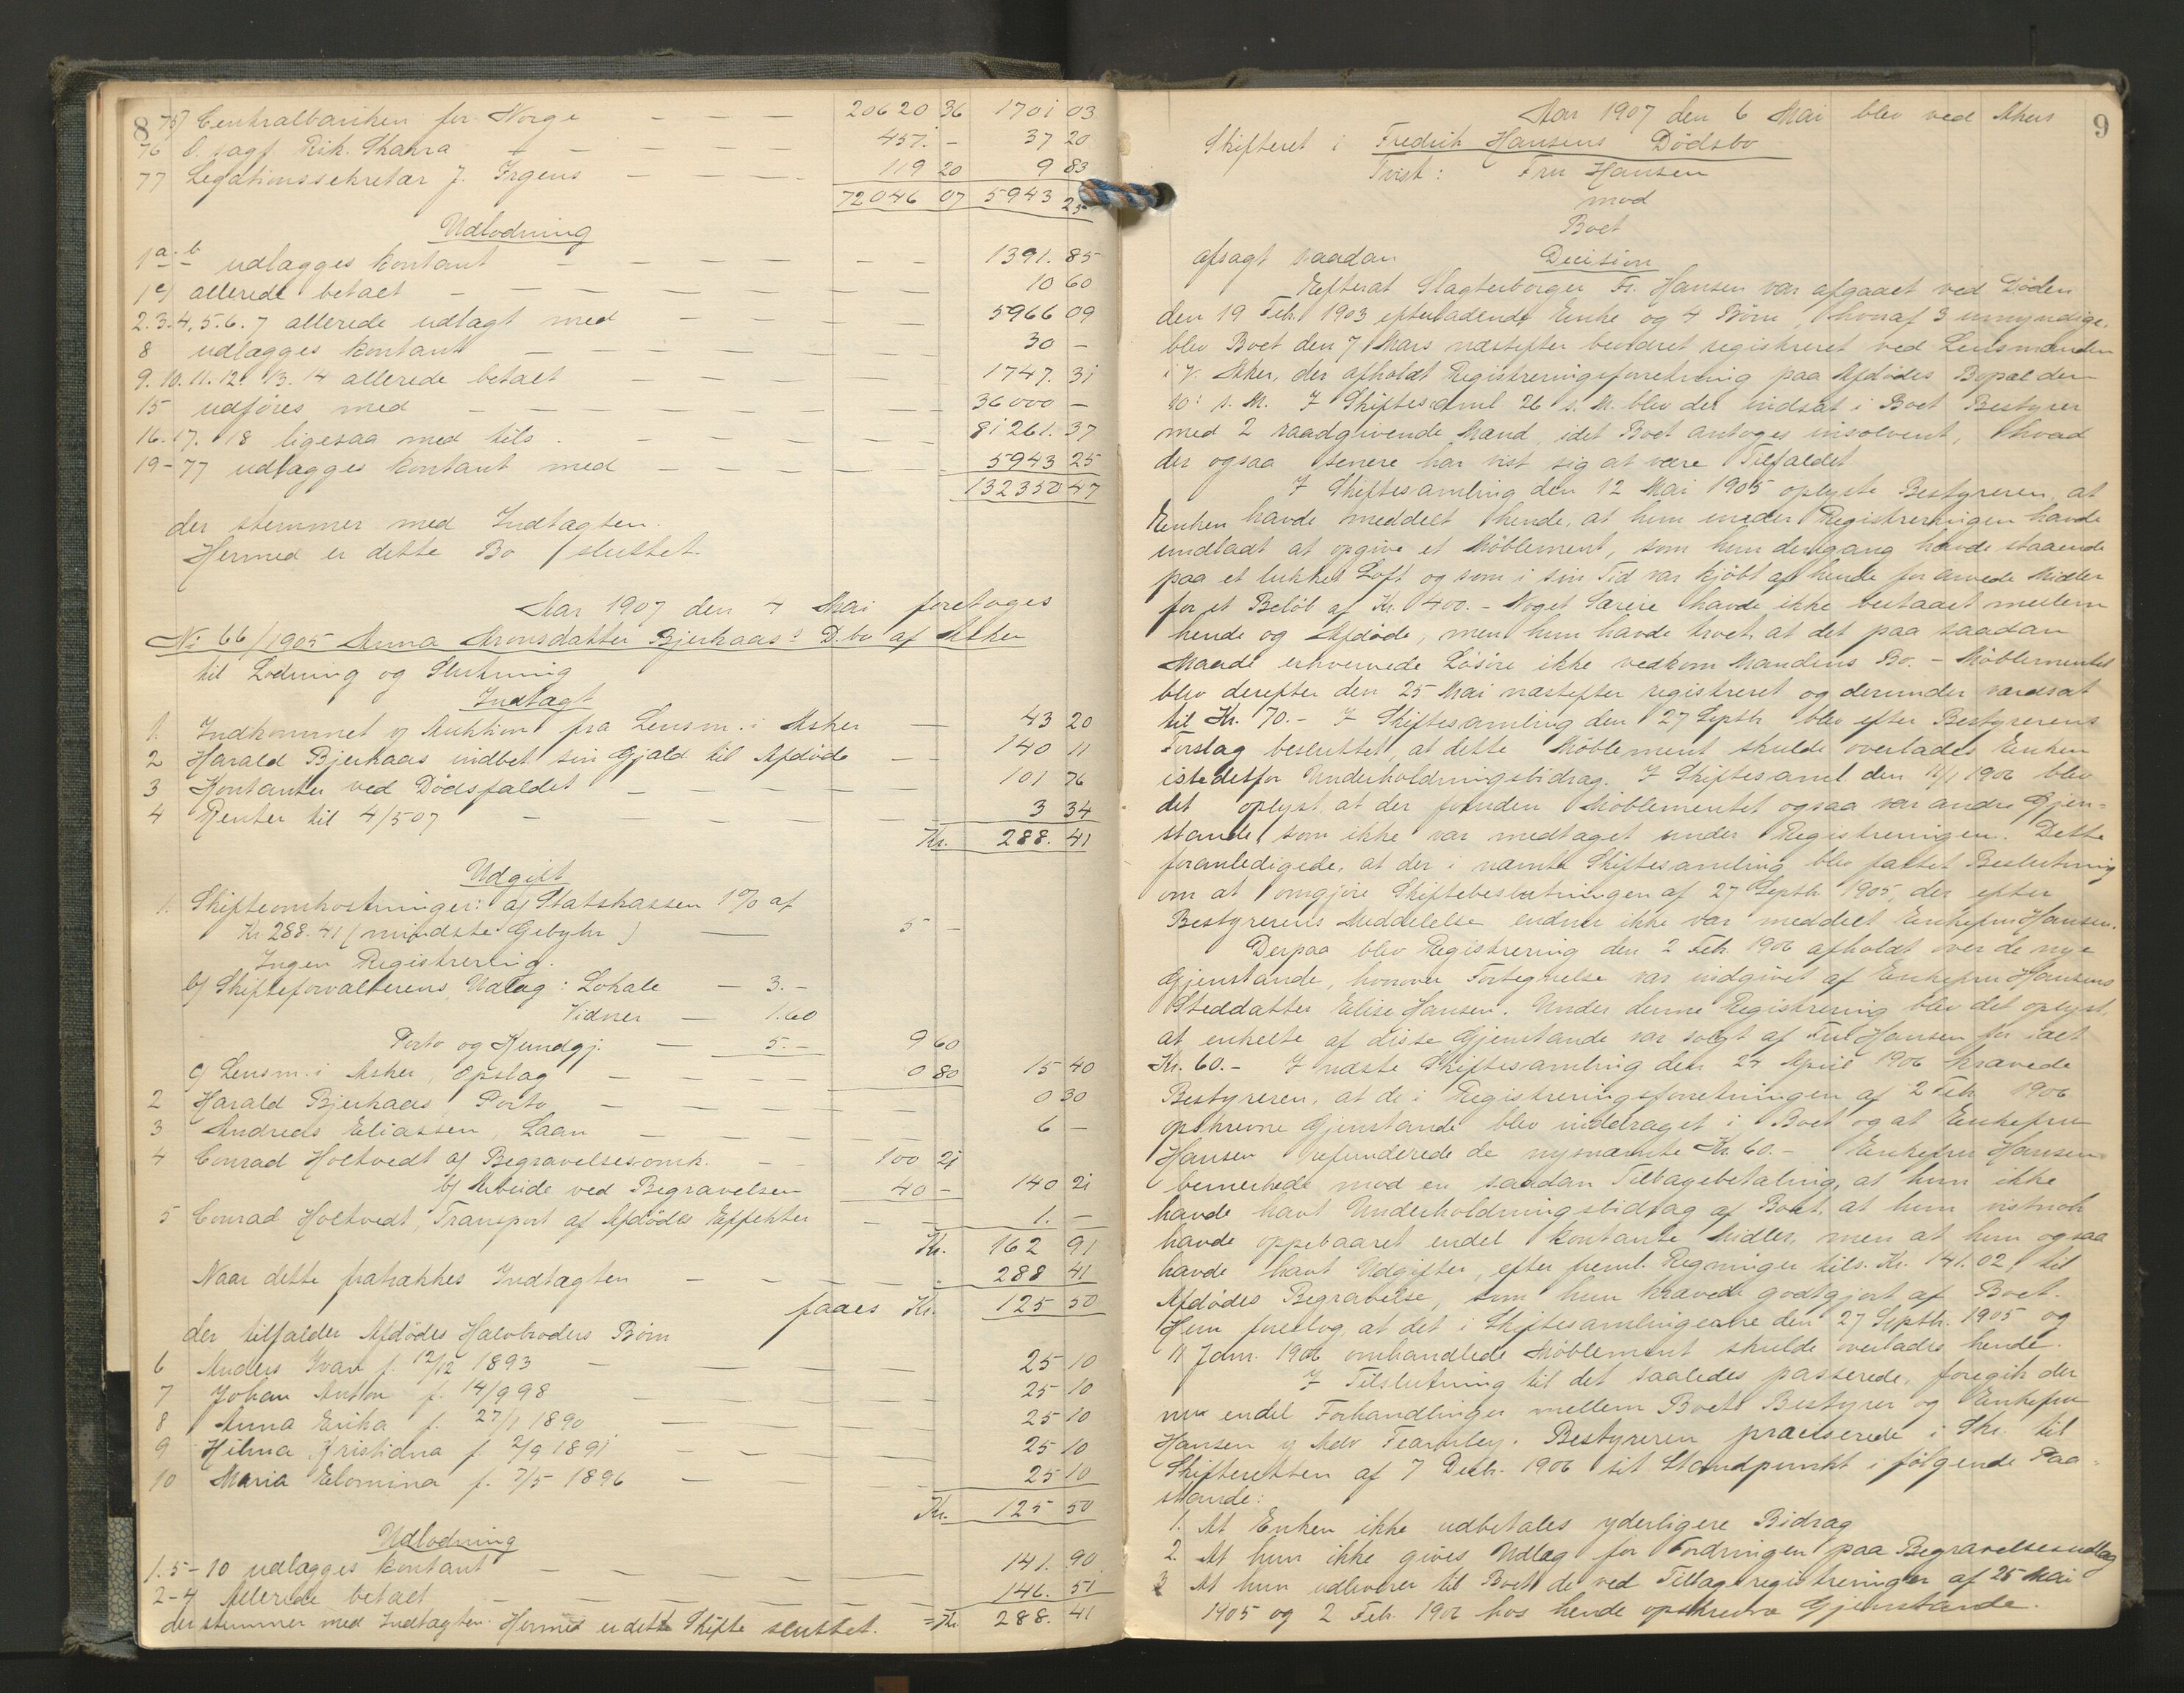 8
75 Centralbanken for Norge — — — 20620 36 1701 03
76 O. sagf. Rik. Skaara — — — 451. – 37 20
77 Legationssekretær J. Irgens — — — 119 20 9 83
72046 07 5943 25
Udlodning
1 a-b udlægges kontant — — — 1391. 85
1 c) allerede betalt — — — 10 60
2.3.4.5.6.7 allerede udlagt med — — 5966 09
8 udlægges kontant — — — 30 –
9.10.11.12.13.14 allerede betalt — — — 1747. 31
15 udføres med — — — 36000 –
16.17.18 ligesaa med tils. — — — 81261. 37
19–77 udlægges kontant med — — — 5943 25
132350 47
der stemmer med Indtægten.
Hermed er dette Bo sluttet.
Aar 1907 den 4 Mai foretoges
No 66/1905 Anna Aronsdatter Bjerkaas's D.bo af Asker
til Lodning og Slutning
Indtægt
1. Indkommet v Auktion fra Lensm. i Asker — 43 20
2 Harald Bjerkaas indbet. sin Gjæld til Afdøde — 140 11
3 Kontanter ved Dødsfaldet — — — 101 76
4 Renter til 4/5 07 — — — 3 34
Kr. 288. 41
Udgift
1. Skifteomkostninger: a) Statskassen 1% af
Kr 288.41 (mindste Gebyhr) — 5 –
Ingen Registrering.
b) Skifteforvalterens Udlæg: Lokale — 3.–
Vidner — 1.60
Porto og Kundgj. — 5.– 9 60
c) Lensm. i Asker, Opslag — — — 0 80 15 40
2 Harald Bjerkaas, Porto — — — 0 30
3 Andreas Eliassen, Laan — — — 6 –
4 Conrad Holtvedt a) Begravelsesomk. — — 100 21
b) Arbeide ved Begravelsen 40 – 140 21
5 Conrad Holtvedt, Transport af Afdødes Effekter — — 1. –
Kr. 162 91
Naar dette fratrækkes Indtægten — — — 288 41
faaes Kr. 125 50
der tilfalder Afdødes Halvbroders Børn
6 Anders Ivar f. 12/12 1893 — — — 25 10
7 Johan Anton f. 14/9 98 — — — 25 10
8 Anna Erika f. 27/1 1890 — — — 25 10
9 Hilma Kristiana f 2/9 1891 — — — 25 10
10 Maria Elomina f. 7/5 1896 — — — 25 10
Kr. 125 50
Udlodning
1.5–10 udlægges kontant — — — 141. 90
2–4 Allerede betalt — — — 146. 51
der stemmer med Indtægten. Hermed er dette Skifte sluttet. = Kr. 288. 41
9
Aar 1907 den 6 Mai blev ved Akers
Skifteret i Fredrik Hansens Dødsbo
Tvist: Fru Hansen
mod
Boet
afsagt saadan Decision
Efterat Slagterborger Fr. Hansen var afgaaet ved Døden
den 19 Feb. 1903 efterladende Enke og 4 Børn, hvoraf 3 umyndige,
blev Boet den 7 Mars næstefter beordret registreret ved Lensmanden
i V. Aker, der afholdt Registreringsforretning paa Afdødes Bopæl den
10: s. M. I Skiftesaml. 26 s. M. blev der indsat i Boet Bestyrer
med 2 raadgivende Mænd, idet Boet antoges insolvent, hvad
der ogsaa senere har vist sig at være Tilfældet
I Skiftesamling den 12 Mai 1905 oplyste Bestyreren, at
Enken havde meddelt hende, at hun under Registreringen havde
undladt at opgive et Møblement, som hun dengang havde staaende
paa et lukket Loft og som i sin Tid var kjøbt af hende for arvede Midler
for et Beløb af Kr. 400.– Noget Særeie havde ikke bestaaet mellem
hende og Afdøde, men hun havde troet, at det paa saadan
Maade erhvervede Løsøre ikke vedkom Mandens Bo. – Møblementet
blev derefter den 25 Mai næstefter registreret og derunder værdsat
til Kr. 70.– I Skiftesamling den 27 Septbr. blev efter Bestyrerens
Forslag besluttet, at dette Møblement skulde overlades Enken
istedetfor Underholdningsbidrag. I Skiftesaml den 11/1 1906 blev
det oplyst, at der foruden Møblementet ogsaa var andre Gjen-
stande, som ikke var medtaget under Registreringen. Dette
foranledigede, at der i nævnte Skiftesamling blev fattet Beslutning
om at omgjøre Skiftebeslutningen af 27 Septbr. 1905, der efter
Bestyrerens Meddelelse endnu ikke var meddelt Enkefru Hansen.
Derpaa blev Registrering den 2 Feb. 1906 afholdt over de nye
Gjenstande, hvorover Fortegnelse var indgivet af Enkefru Hansens
Steddatter Elise Hansen. Under denne Registrering blev det oplyst,
at enkelte af disse Gjenstande var solgt af Fru Hansen for ialt
Kr. 60.– I næste Skiftesamling den 27 April 1906 krævede
Bestyreren, at de i Registreringsforretningen af 2 Feb. 1906
opskrevne Gjenstande blev inddraget i Boet og at Enkefru
Hansen refunderede de nysnævnte Kr. 60.– Enkefru Hansen
bemerkede mod en saadan Tilbagebetaling, at hun ikke
havde havt Underholdningsbidrag af Boet, at hun vistnok
havde oppebaaret endel kontante Midler, men at hun ogsaa
havde havt Udgifter, efter freml. Regninger tils. Kr. 141.02, til
Afdødes Begravelse, som hun krævede godtgjort af Boet.
Hun foreslog, at det i Skiftesamlingerne den 27 Septbr. 1905 og
11 Jan. 1906 omhandlede Møblement skulde overlades hende.
I Tilslutning til det saaledes passerede, foregik der
nu endel Forhandlinger mellem Boets Bestyrer og Enkefru
Hansen v Adv Fearnley. Bestyreren præciserede i Skr. til
Skifteretten af 7 Decbr. 1906 sit Standpunkt i følgende Paa-
stande:
1. At Enken ikke udbetales yderligere Bidrag
2. At hun ikke gives Udlæg for Fordringen paa Begravelsesudlæg
3 At hun udleverer til Boet de ved Tillægsregistreringer af 25 Mai
1905 og 2 Feb. 1906 hos hende opskrevne Gjenstande.